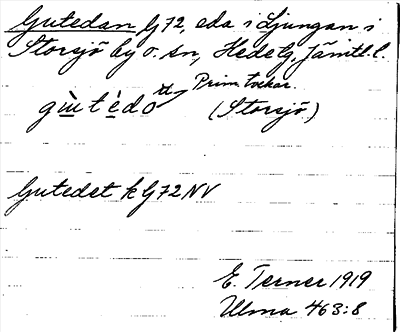 Gutedan G72, eda i Ljungan i
Storsjö by o. sn, Hede tg, Jämtl. l.
Prim. tvekar.
gùtèdo (Storsjö.)
Gutedet k G72 NV
E. Terner 1919
Ulma 463:8